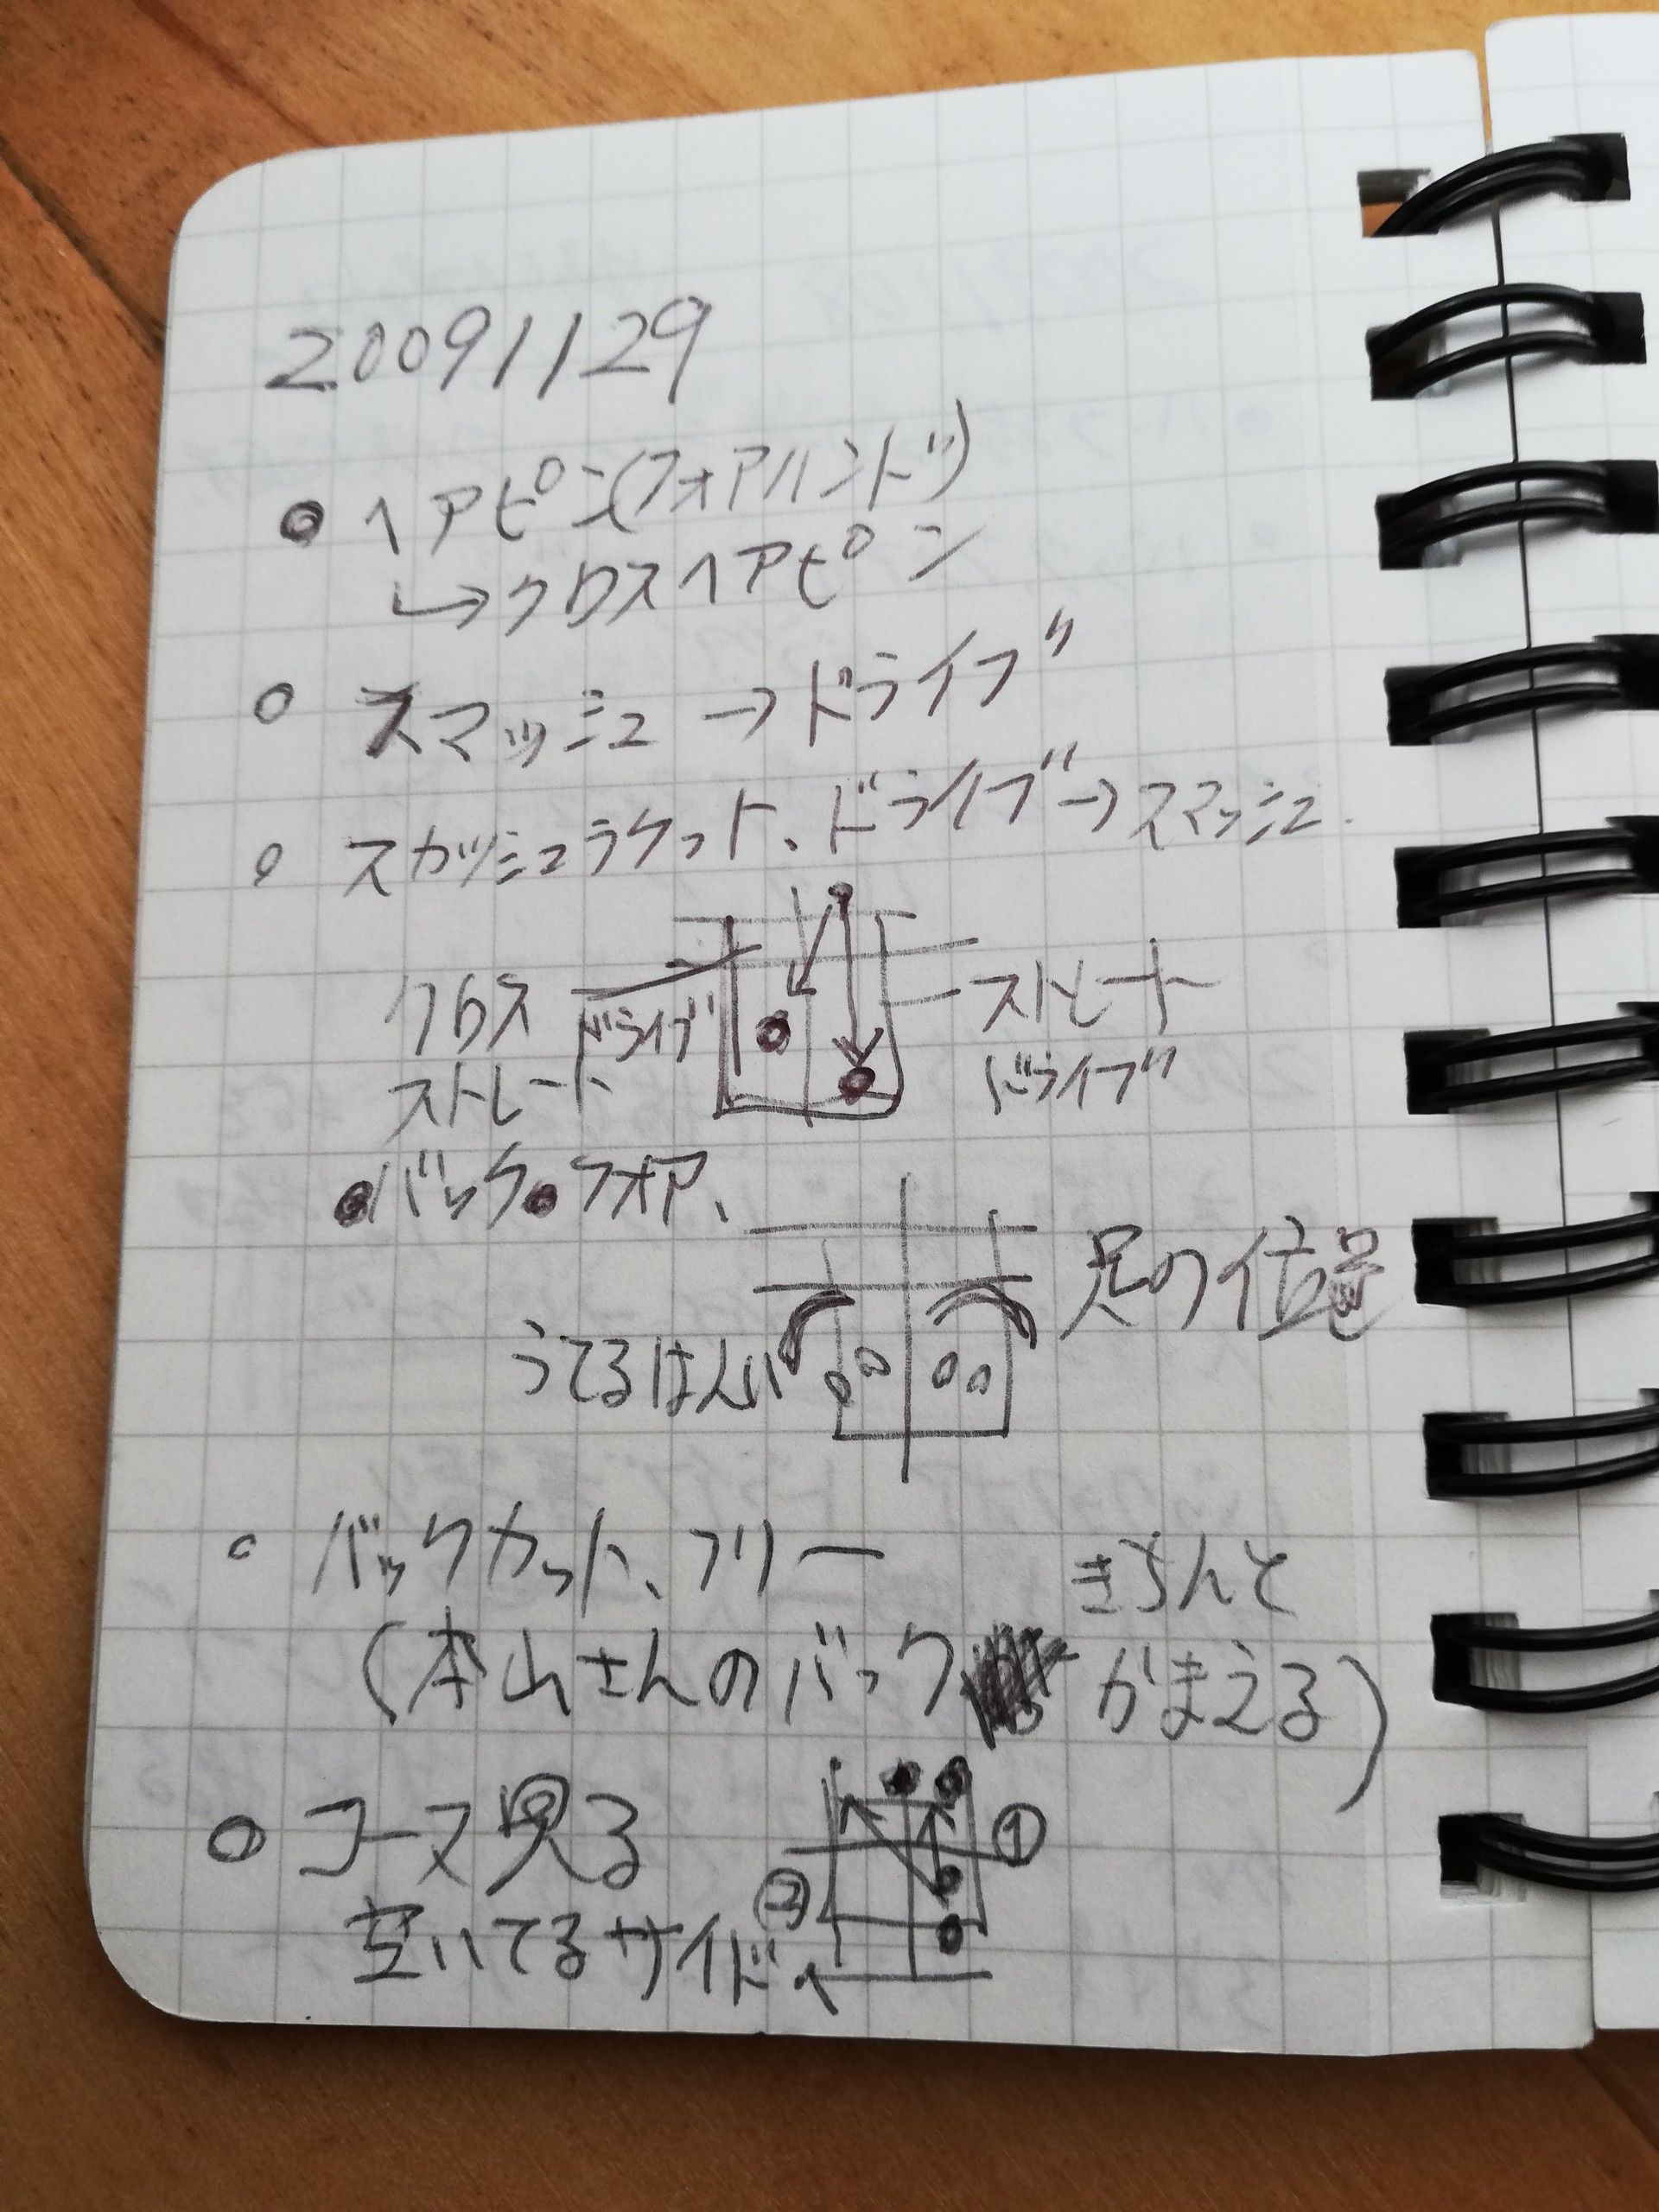 20091129
● ヘアピン(フォアハンド)
↳クロスヘアピン
○ スマッシュ→ドライブ
○ スカッシュラケット、ドライブ→スマッシュ
クロス
ストレート
ドライブ
ストレート
ドライブ
●バック●フォア、
足の位置
うてるはんい
○ バックカット、フリー
きちんと
(本山さんのバック かまえる)
○ コース見る
① ②
空いてるサイドへ